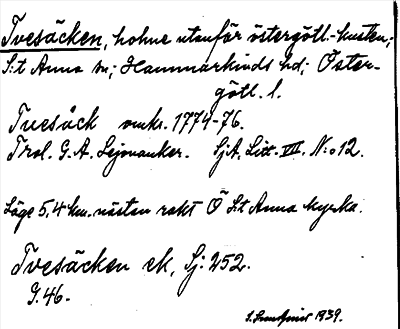 Tvesäcken, holme utanför östergötl.-kusten;
S:t Anna sn; Hammarkinds hd; Öster-
götl. l.
Tvesäck omkr. 1774-76.
Trol. G. A. Lejonanker. SjA. Litt. VII. N:o 12.
Läge 5,4 km. nästan rakt Ö S:t Anna kyrka.
Tvesäcken ek, Sj. 252.
G. 46.
1939.